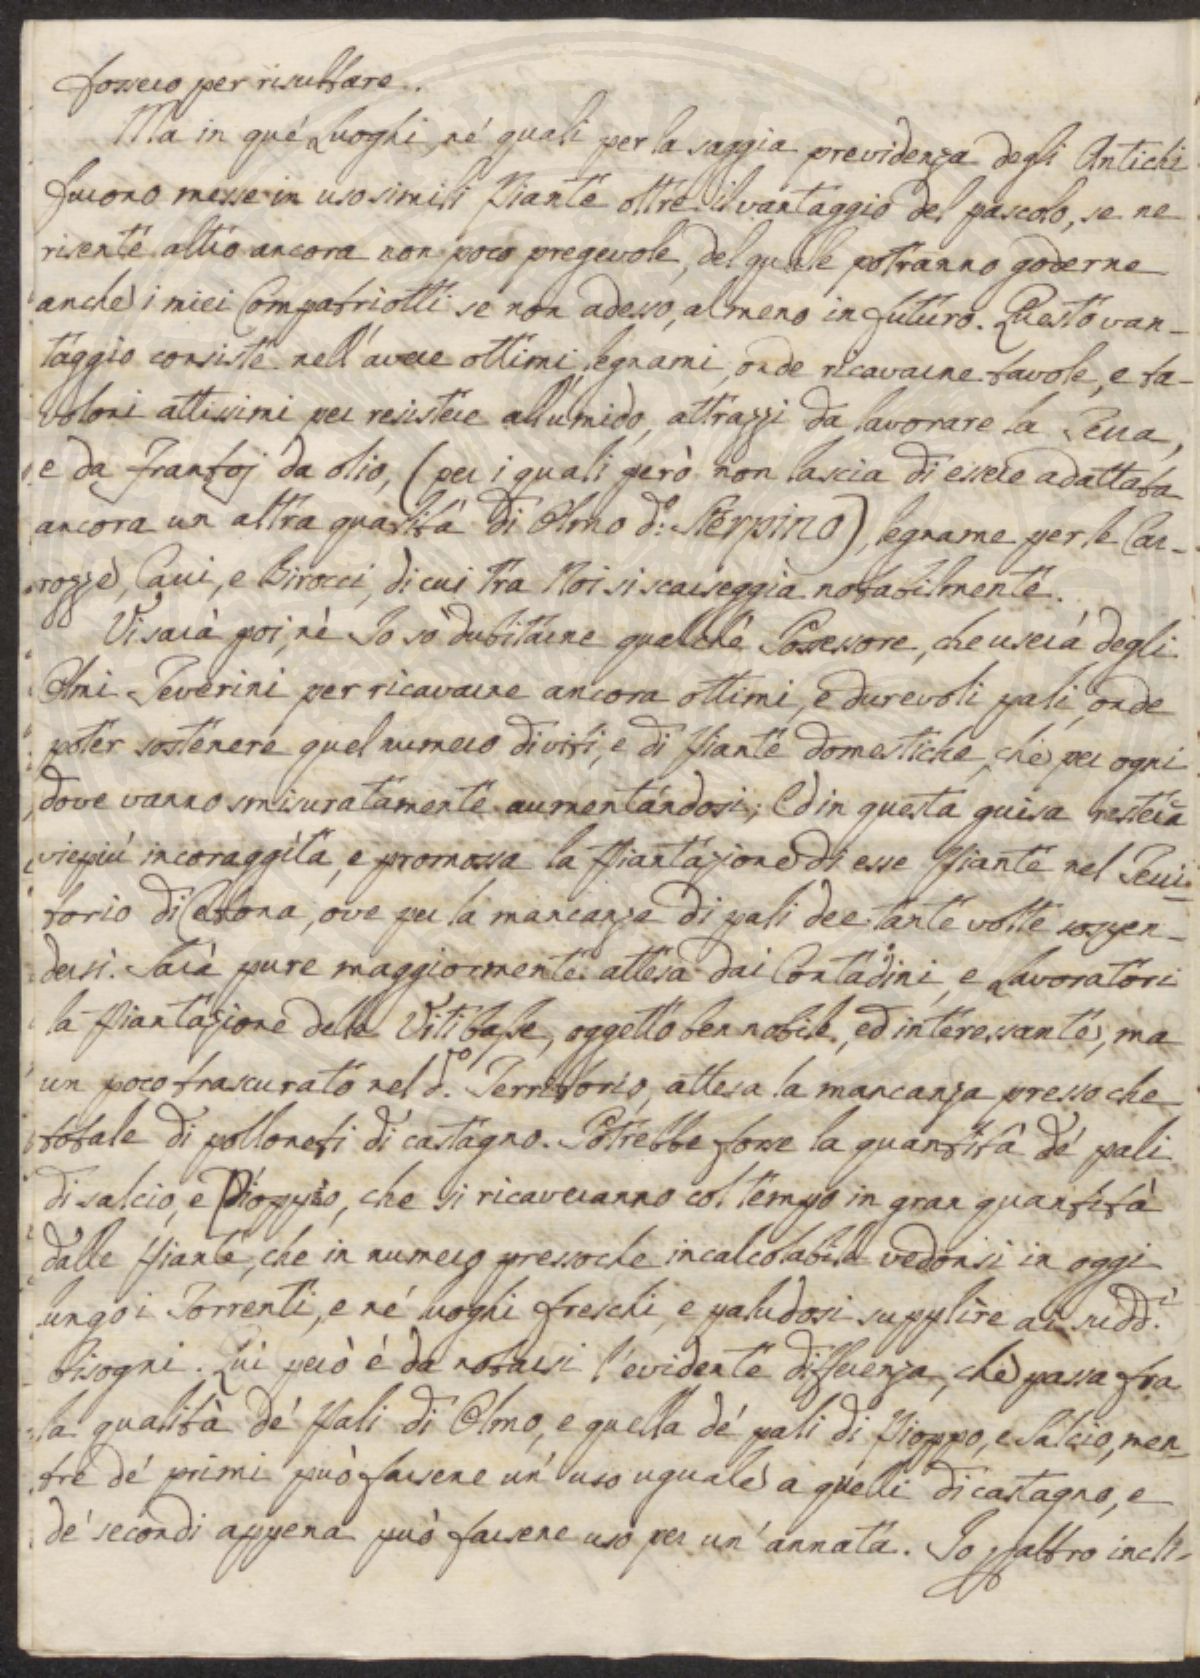 fossero per risultare.
Ma in qué Luoghi, né quali per la saggia previdenza degli Antichi
furono messe in uso simili Piante oltre il vantaggio del pascolo, se ne
risente altro ancora non poco pregevole, del quale potranno goderne
anche i miei Compatriotti se non adesso, almeno in futuro. Questo van-
taggio consiste nell'avere ottimi legnami, onde ricavarne tavole, e ta-
voloni attissimi per resistere all'umido, attrazzi da lavorare la Terra,
e da Frantoj da olio, (per i quali però non lascia di essere adattata
ancora un altra qualità di Olmo d.º Sterpino), legname per le Car-
rozze, Carri, e Birocci, di cui tra Noi si scarseggia notabilmente.
Vi sarà poi, nè Io sò dubitarne qualche Possessore, che userà degli
Olmi Teverini per ricavarne ancora ottimi, e durevoli pali, onde
poter sostenere quel numero di viti, e di Piante domestiche, che per ogni
dove vanno smisuratamente aumentandosi; Ed in questa guisa resterà
viepiù incoraggita, e promossa la Piantazione di esse Piante nel Terri-
torio di Cetona, ove per la mancanza di pali dee tante volte sospen-
dersi. Sarà pure maggiormente attesa dai Contadini, e Lavoratori
la Piantazione delle Viti basse, oggetto ben nobile, ed interessante, ma
un poco trascurato nel d.to Territorio, attesa la mancanza presso che
totale di polloneti di castagno. Potrebbe forse la quantità dé pali
di salcio, e Pioppo, che si ricaveranno col tempo in gran quantità
dalle Piante, che in numero pressoche incalcolabile vedonsi in oggi
lungo i Torrenti, e né luoghi freschi, e paludosi supplire ai sudd.i
bisogni. Qui però é da notarsi l'evidente differenza, che passa fra
la qualità dé Pali di Olmo, e quella dé pali di Pioppo, e Salcio, men-
tre dé primi può farsene un' uso uguale a quelli di castagno, e
dé secondi appena può farsene uso per un' annata. Io p altro incli-